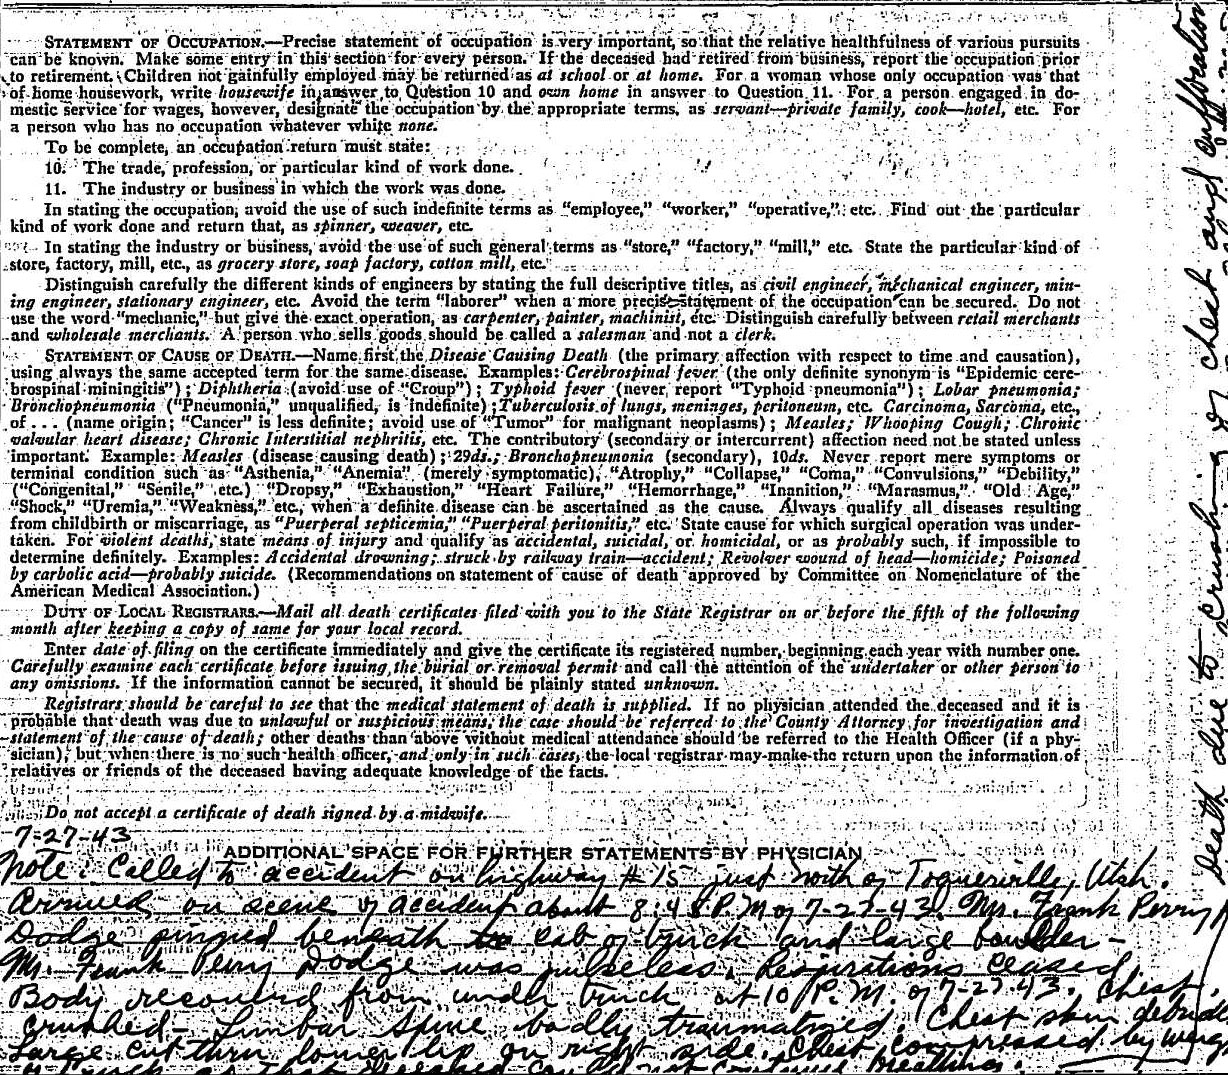 STATEMENT OF OCCUPATION.—Precise statement of occupation is very important, so that the relative healthfulness of various pursuits
can be known. Make some entry in this section for every person. If the deceased had retired from business, report the occupation prior
to retirement. Children not gainfully employed may be returned as at school or at home. For a woman whose only occupation was that
of home housework, write housewife in answer to Question 10 and own home in answer to Question 11. For a person engaged in do-
mestic service for wages, however, designate the occupation by the appropriate terms, as servant—private family, cook—hotel, etc. For
a person who has no occupation whatever white none.
To be complete, an occupation return must state:
10. The trade, profession, or particular kind of work done.
11. The industry or business in which the work was done.
In stating the occupation, avoid the use of such indefinite terms as “employee,” “worker,” “operative,” etc. Find out the particular
kind of work done and return that, as spinner, weaver, etc.
In stating the industry or business, avoid the use of such general terms as “store,” “factory,” “mill,” etc. State the particular kind of
store, factory, mill, etc., as grocery store, soap factory, cotton mill, etc.
Distinguish carefully the different kinds of engineers by stating the full descriptive titles, as civil engineer, mechanical engineer, min-
ing engineer, stationary engineer, etc. Avoid the term “laborer” when a more precise statement of the occupation can be secured. Do not
use the word “mechanic,” but give the exact operation, as carpenter, painter, machinist, etc. Distinguish carefully between retail merchants
and wholesale merchants. A person who sells goods should be called a salesman and not a clerk.
STATEMENT OF CAUSE OF DEATH.—Name first the Disease Causing Death (the primary affection with respect to time and causation),
using always the same accepted term for the same disease. Examples: Cerebrospinal fever (the only definite synonym is “Epidemic cere-
brospinal miningitis”); Diphtheria (avoid use of “Croup”); Typhoid fever (never report “Typhoid pneumonia”); Lobar pneumonia;
Bronchopneumonia (“Pneumonia,” unqualified, is indefinite); Tuberculosis of lungs, meninges, peritoneum, etc. Carcinoma, Sarcoma, etc.,
of . . . (name origin; “Cancer” is less definite; avoid use of “Tumor” for malignant neoplasms); Measles; Whooping Cough; Chronic
valvular heart disease; Chronic Interstitial nephritis, etc. The contributory (secondary or intercurrent) affection need not be stated unless
important. Example: Measles (disease causing death); 29ds.; Bronchopneumonia (secondary), 10ds. Never report mere symptoms or
terminal condition such as “Asthenia,” “Anemia” (merely symptomatic), “Atrophy,” “Collapse,” “Coma,” “Convulsions,” “Debility,”
(“Congenital,” “Senile,” etc.) “Dropsy,” “Exhaustion,” “Heart Failure,” “Hemorrhage,” “Inanition,” “Marasmus,” “Old Age,”
“Shock,” “Uremia,” “Weakness,” etc., when a definite disease can be ascertained as the cause. Always qualify all diseases resulting
from childbirth or miscarriage, as “Puerperal septicemia,” “Puerperal peritonitis,” etc. State cause for which surgical operation was under-
taken. For violent deaths, state means of injury and qualify as accidental, suicidal, or homicidal, or as probably such, if impossible to
determine definitely. Examples: Accidental drowning; struck by railway train—accident; Revolver wound of head—homicide; Poisoned
by carbolic acid—probably suicide. (Recommendations on statement of cause of death approved by Committee on Nomenclature of the
American Medical Association.)
DUTY OF LOCAL REGISTRARS.—Mail all death certificates filed with you to the State Registrar on or before the fifth of the following
month after keeping a copy of same for your local record.
Enter date of filing on the certificate immediately and give the certificate its registered number, beginning each year with number one.
Carefully examine each certificate before issuing the burial or removal permit and call the attention of the undertaker or other person to
any omissions. If the information cannot be secured, it should be plainly stated unknown.
Registrars should be careful to see that the medical statement of death is supplied. If no physician attended the deceased and it is
probable that death was due to unlawful or suspicious means, the case should be referred to the County Attorney for investigation and
statement of the cause of death; other deaths than above without medical attendance should be referred to the Health Officer (if a phy-
sician), but when there is no such health officer, and only in such cases, the local registrar may make the return upon the information of
relatives or friends of the deceased having adequate knowledge of the facts.
Do not accept a certificate of death signed by a midwife.
7-27-43
ADDITIONAL SPACE FOR FURTHER STATEMENTS BY PHYSICIAN
Note: Called to accident on highway #15 just north of Toquerville, Utah.
Arrived on scene of accident about 8:45 P.M of 7-27-43. Mr. Frank Perry
Dodge pinned beneath cab of truck and large boulder-
Mr. Frank Perry Dodge was pulseless. Respirations ceased.
Body recovered from under truck at 10 P.M. of 7-27-43. Chest
crushed- Lumbar spine badly traumatized. Chest skin debrided
Large cut thru lower lip on right side. Chest compressed by weight
of truck so that deceased could not continue breathing.
Death due to crushing of chest and suffocation